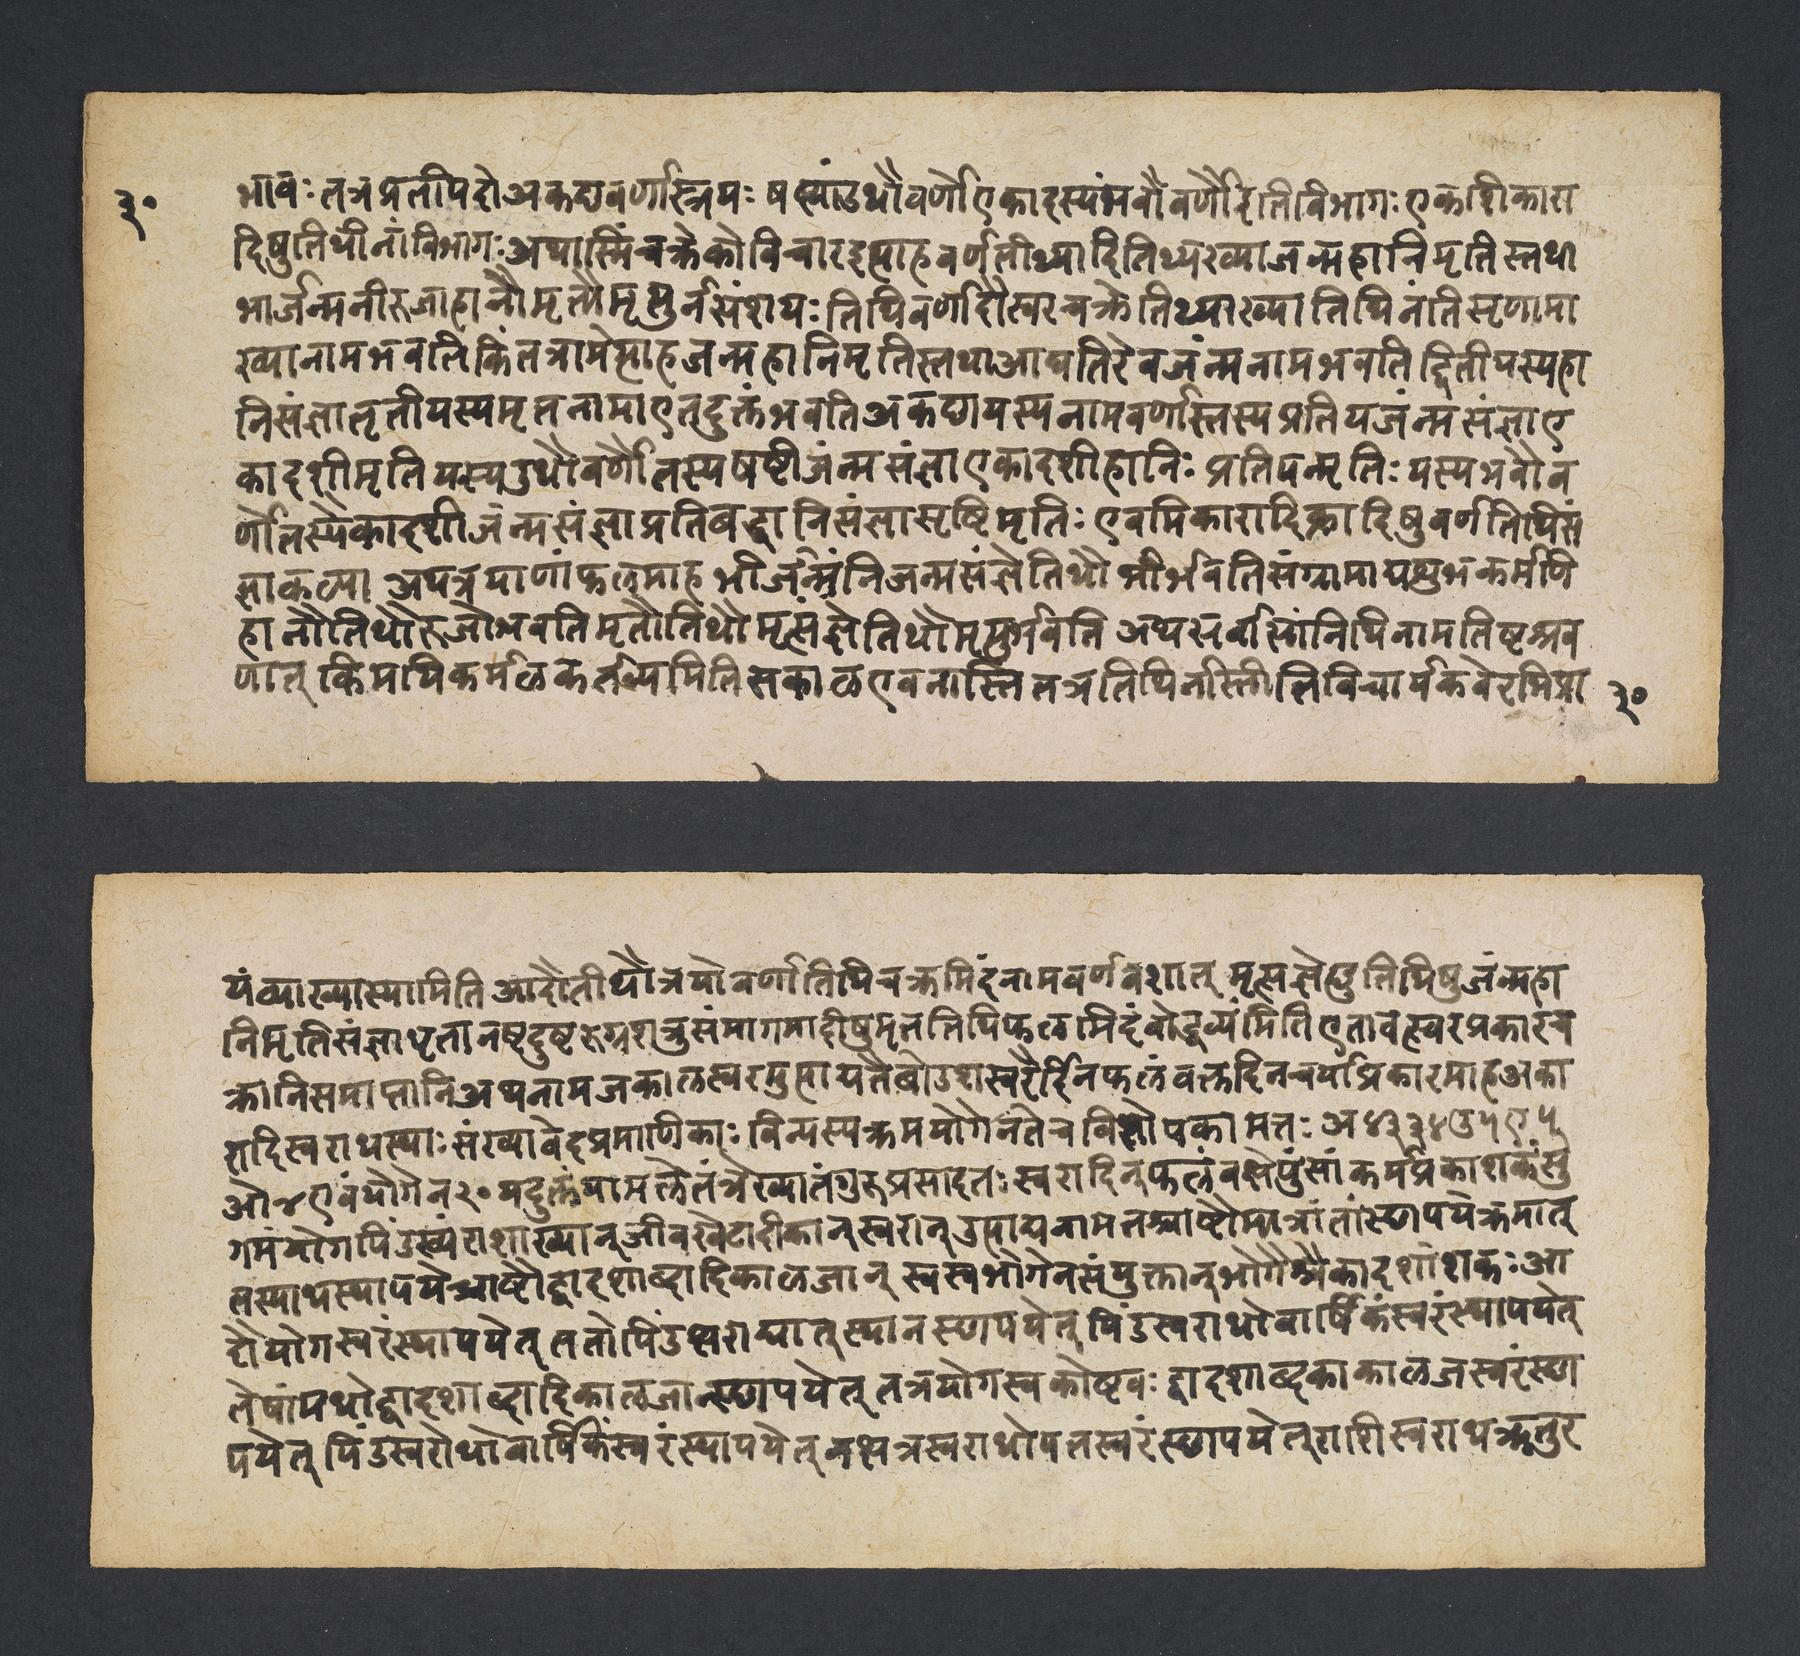 ३०
भावः तत्र प्रतीपदो अकछवर्णास्त्रयः षष्ट्यांउथौवर्णौएकादस्यंभवौवर्णौदितिविभागः एकाशीकारा
दिषुतिथीनांविभागःअथास्मिंचक्रेकोविचारइत्याहवर्णतीथ्यादितिथ्यरख्याजन्महानिमृतिस्तथा
भार्जन्मनीरुजाहानौमृतौमृत्युर्नसंशयः तिथिवर्णादौस्वरचक्रेतिथ्याख्यातिथिनंतिसृणामा
ख्यानामभवतिकिंतत्रामेत्याहजन्महानिमृतिस्तथाआद्यतिरेवजंन्मनामभवतिद्वितीयस्यहा
निसंज्ञातृतीयस्यमृतनामाएतदुक्तंभवतिअकछायस्यनामवर्णास्तस्यप्रतिपजंन्मसंज्ञाए
कादशीमृतियस्यउथौवर्णौतस्यषष्टीजंन्मसंज्ञाएकादशीहानिः प्रतिपन्मृतिः यस्यभवौवं
र्णौतस्यैकादशीजंन्मसंज्ञाप्रतिबद्धानिसंज्ञासृष्टिमृतिः एवमिकारादिकादिषुवर्णतिथिसं
ज्ञाकव्या अयत्रयाणांफलमाह भीर्जन्मंनिजन्मसंज्ञेतिथौ भीर्भवतिसंग्रामाद्यशुभकर्मणि
हानौतिथौरुजोभवतिमृतौतिथौमृत्संज्ञेतिथौमृत्युर्भवति अथसर्वासांतिथिनामतिष्टश्रव
णात् किमपिकर्मळकर्तव्यमितिसकाळएवनास्तितत्रतिथिर्नास्तितीतिविचार्यकवेरभिप्रा
३०
यंव्याख्यास्यामिति आदौतीथौत्रयोवर्णातिथिचक्रमिदंनामवर्णवशात् मृत्संज्ञेषुतिथिषुजंन्महा
निमृतिसंज्ञाधृतानष्टदुष्टरुग्नशत्रुसंमागमादीषुमृततिथिफळमिदंबोद्धव्यंमितिएतावत्स्वरप्रकारच
क्रानिसमाप्तानिअथनामजकाळस्वरमुत्पाद्यतैबोउशस्वरैर्दिनफलंवक्तदिनचर्याप्रकारमाहअका
रादिस्वराधस्थाः संख्यावेदप्रमाणिकाः विन्यस्यक्रमयोगेनतेचविशोपकामतः अ४इ३४उ५ए५
ओ४एवंयोगेन२०यदुक्तंयामलेतंत्रेख्यातंगुरुप्रसादतः स्वरादिनफलंवक्षेपुंसांकर्मप्रकाशकंसु
गमंयोगपिंडस्थंराशाख्यान्जीवखेटादीकान्स्वरान्उत्पाद्यनामेतश्चाष्टौमात्रांतांस्छापयेत्क्रमात्
तस्याधस्थापयेच्चाष्टौद्वादशाब्दादिकाळजान् स्वस्वभोगेनसंयुक्तान्भोगैश्चैकादशांशकः आ
दौयोगस्वरंस्थापयेत् ततोपिंडश्वरोद्यात्स्थानस्छापयेत् पिंडस्वराधोवार्षिकंस्वरंस्थापयेत्
तेषांमधोद्वादशाब्दादिकाळजान्स्छापयेत् तत्रयोगस्वकोष्टवः द्वादशाब्दकाकाळजस्वरंस्छा
पयेत् पिंडस्वराधोवार्षिकंस्वरंस्थापयेत् नक्षत्रस्वराधोयतस्वरंस्छापयेत्राशिस्वराधऋतुर